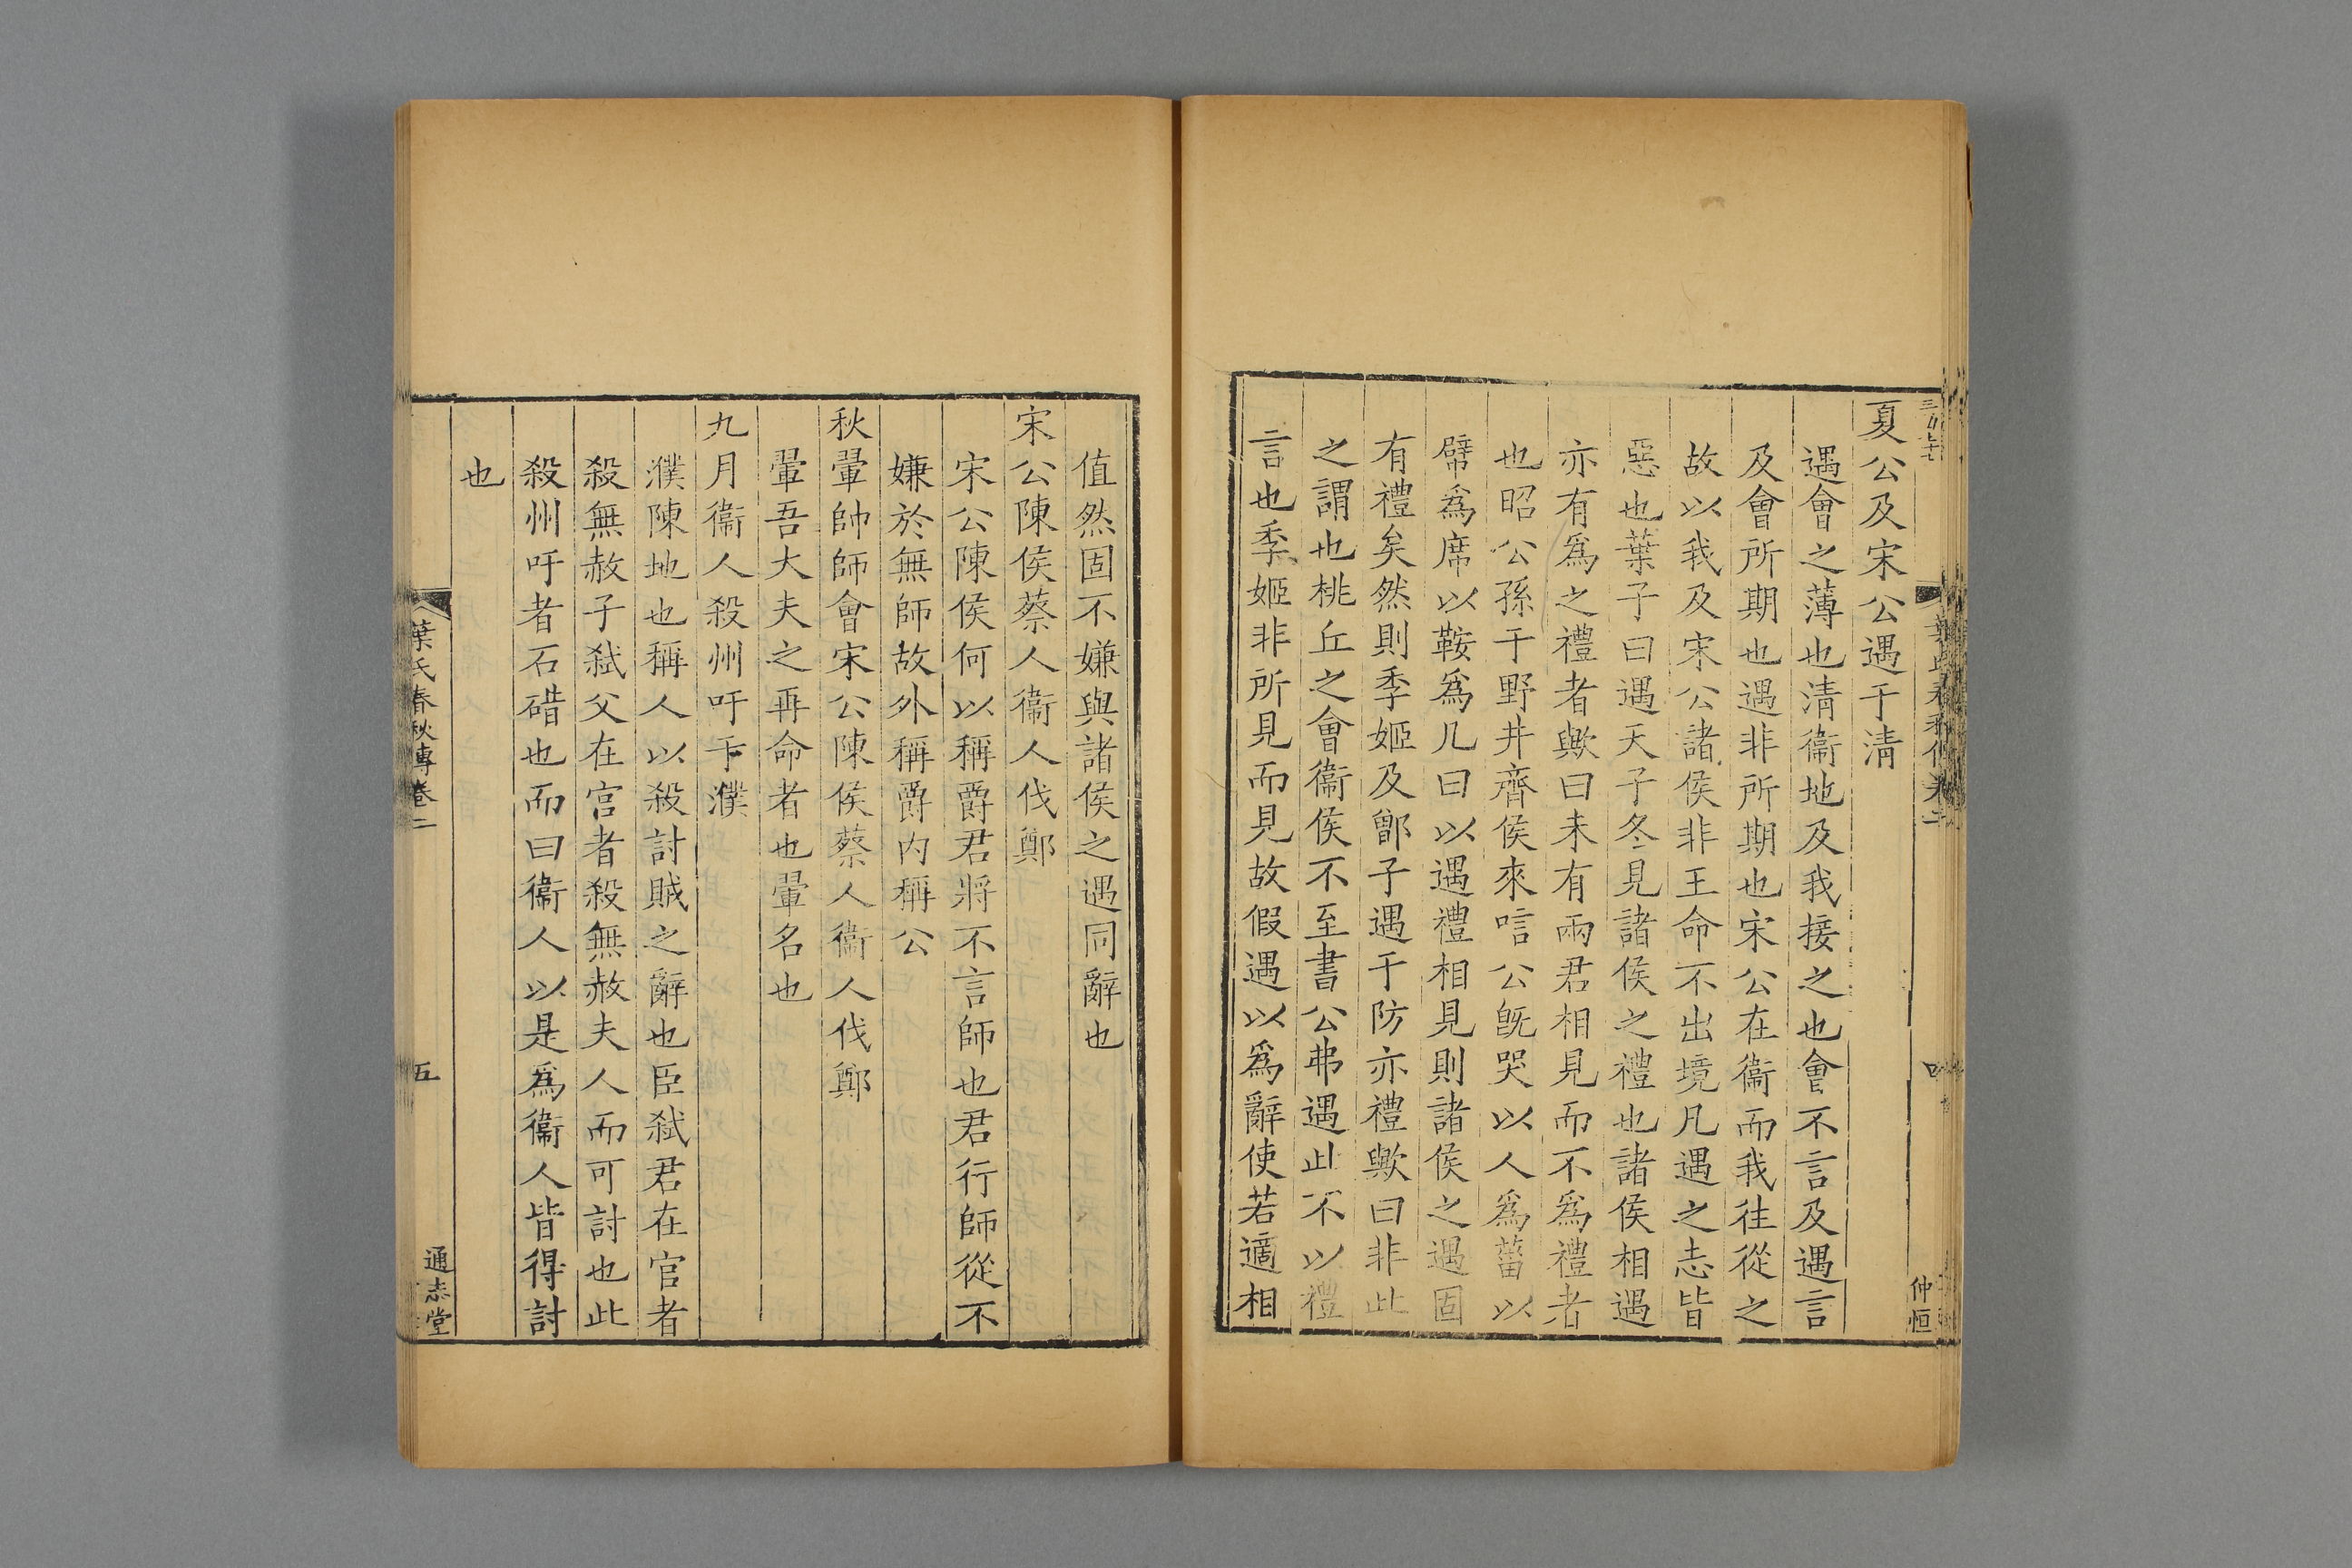 夏公及宋公遇于清
遇會之薄也清衞地及我接之也會不言及遇言
及會所期也遇非所期也宋公在衞而我往從之
故以我及宋公諸侯非王命不出境凡遇之志皆
惡也葉子曰遇天子冬見諸侯之禮也諸侯相遇
亦有爲之禮者歟曰未有兩君相見而不爲禮者
也昭公孫于野井齊侯來唁公旣哭以人爲菑以
幦爲席以鞍爲几曰以遇禮相見則諸侯之遇固
有禮矣然則季姬及鄫子遇于防亦禮歟曰非此
之謂也桃丘之會衞侯不至書公弗遇此不以禮
言也季姬非所見而見故假遇以爲辭使若適相
仲恒
值然固不嫌與諸侯之遇同辭也
宋公陳侯蔡人衞人伐鄭
宋公陳侯何以稱爵君將不言師也君行師從不
嫌於無師故外稱爵内稱公
秋翬帥師會宋公陳侯蔡人衞人伐鄭
翬吾大夫之再命者也翬名也
九月衞人殺州吁于濮
濮陳地也稱人以殺討賊之辭也臣弑君在官者
殺無赦子弑父在宮者殺無赦夫人而可討也此
殺州吁者石碏也而曰衞人以是爲衞人皆得討
也
葉氏春秋傳卷二
五
通志堂